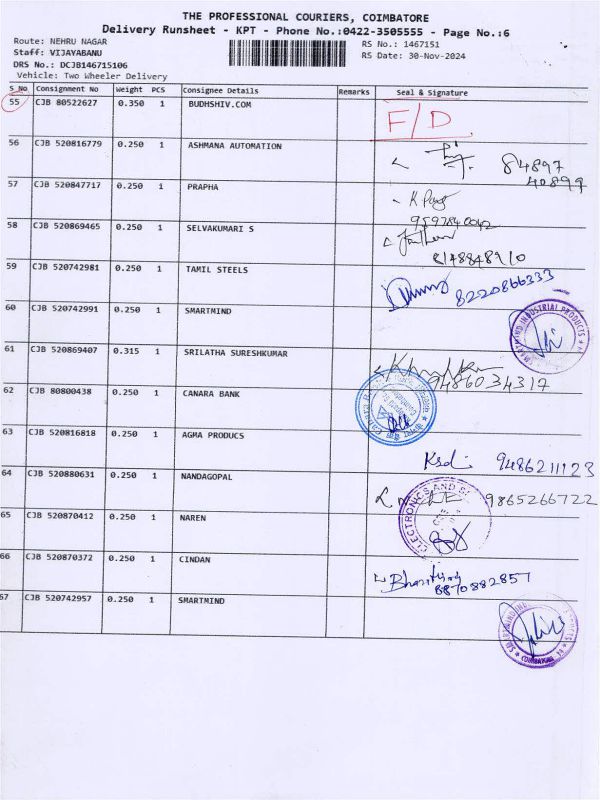 THE PROFESSIONAL COURIERS, COIMBATORE
Delivery Runsheet - KPT - Phone No.:0422-3505555 - Page No.:6
Route: NEHRU NAGAR RS No.: 1467151
Staff: VIJAYABANU RS Date: 30-Nov-2024
DRS No.: DCJB146715106
Vehicle: Two Wheeler Delivery
S No Consignment No Weight PCS Consignee Details Remarks Seal & Signature
55 CJB 80522627 0.350 1 BUDHSHIV.COM F/D
56 CJB 520816779 0.250 1 ASHMANA AUTOMATION 84897
40899
57 CJB 520847717 0.250 1 PRAPHA
9597840042
58 CJB 520869465 0.250 1 SELVAKUMARI S
8148848910
59 CJB 520742981 0.250 1 TAMIL STEELS 8220866333
60 CJB 520742991 0.250 1 SMARTMIND
61 CJB 520869407 0.315 1 SRILATHA SURESHKUMAR
9486034317
62 CJB 80800438 0.250 1 CANARA BANK
63 CJB 520816818 0.250 1 AGMA PRODUCS
9486211123
64 CJB 520880631 0.250 1 NANDAGOPAL 9865266722
ELECTRONICS AND
65 CJB 520870412 0.250 1 NAREN
66 CJB 520870372 0.250 1 CINDAN
8870882857
67 CJB 520742957 0.250 1 SMARTMIND
COIMBATORE